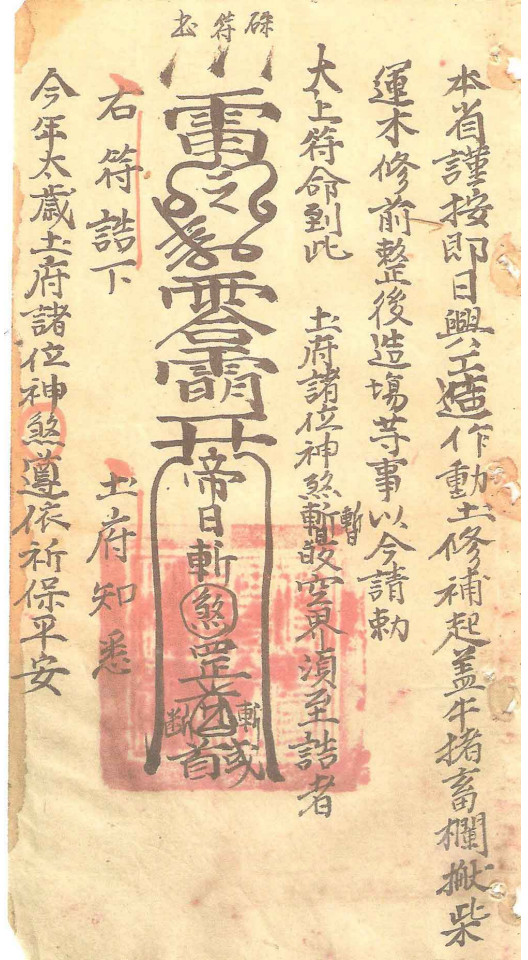 硃符式
本省謹按即日興工造作動土修補起盖牛猪畜欄搬柴
運木修前整後造塲䒭事以今請勅
太上符命到此 土府諸位神煞暫 空界湏至誥者
暫
雷
之
帝日斬煞罡
斬
斷
首
右符誥下 土府知悉
今年太歲土府諸位神煞遵依祈保平安